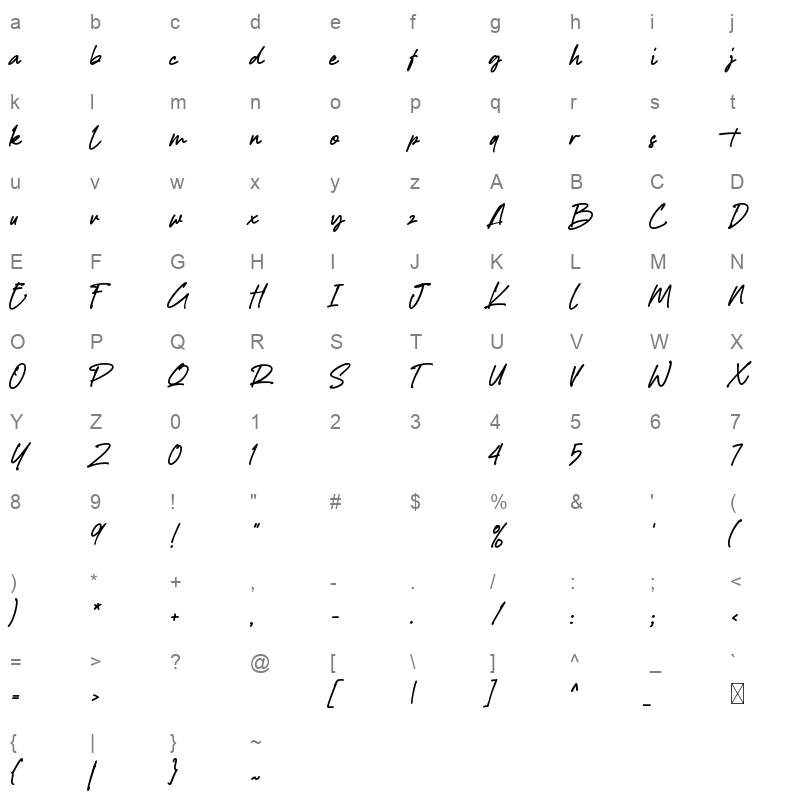 a b c d e f g h i j
a b c d e f g h i j
k l m n o p q r s t
k l m n o p q r s t
u v w x y z A B C D
u v w x y z A B C D
E F G H I J K L M N
E F G H I J K L M N
O P Q R S T U V W X
O P Q R S T U V W X
Y Z 0 1 2 3 4 5 6 7
Y Z 0 1 4 5 7
8 9 ! " # $ % & ' (
9 ! " % ' (
) * + , - . / : ; <
) * + , - . / : ; <
= > ? @ [ \ ] ^ _ `
= > [ \ ] ^ _
{ | } ~
{ | } ~